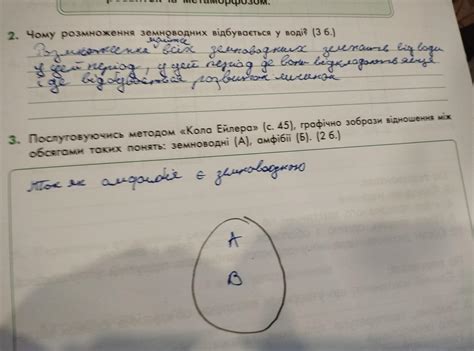 та метаморфозом.
2. Чому розмноження земноводних відбувається у воді? (3 б.)
майже
Розмноження всіх земноводних залежить від води
у цей період, у цей період де вони відкладають яйця
і де відбувається розвиток личинок
3. Послуговуючись методом «Кола Ейлера» (с. 45), графічно зобрази відношення між
обсягами таких понять: земноводні (А), амфібії (Б). (2 б.)
так як амфібія є земноводною
А
В